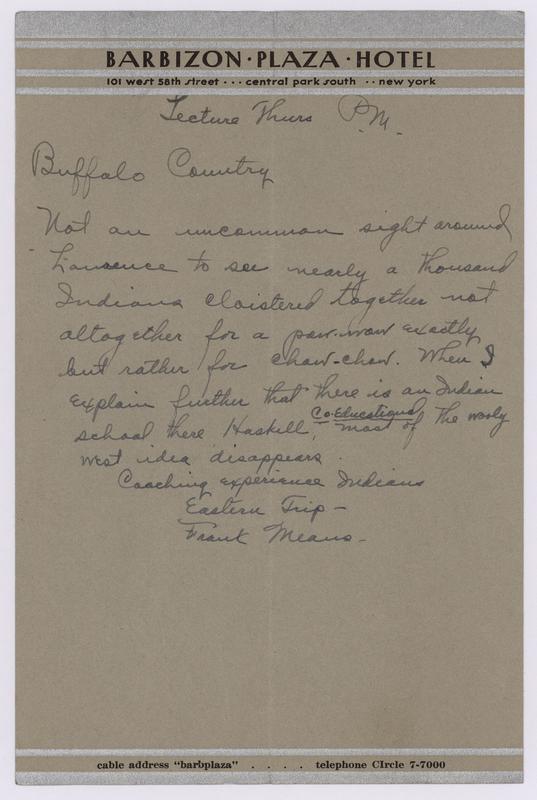 BARBIZON · PLAZA · HOTEL
101 west 58th street · · · central park south · · new york
Lecture Thurs P.M.
Buffalo Country
Not an uncommon sight around
Lawrence to see nearly a thousand
Indians cloistered together not
altogether for a pow-wow exactly
but rather for chow-chow. When I
explain further that there is an Indian
school there Haskell, Co-Educational most of the wooly
west idea disappears.
Coaching experience Indians
Eastern Trip –
Frank Means –
cable address "barbplaza" . . . . telephone CIrcle 7-7000